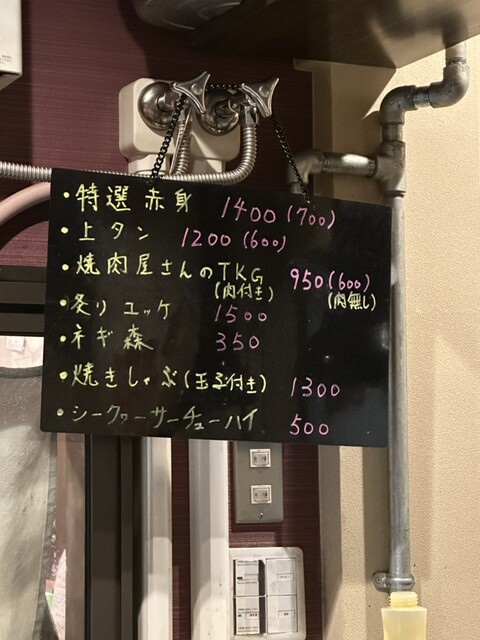 ・特選 赤身 1400(700)
・上タン 1200(600)
・焼肉屋さんのTKG 950(600)
(肉付き) (肉無し)
・炙りユッケ 1500
・ネギ森 350
・焼きしゃぶ(玉子付き) 1300
・シークヮーサーチューハイ 500